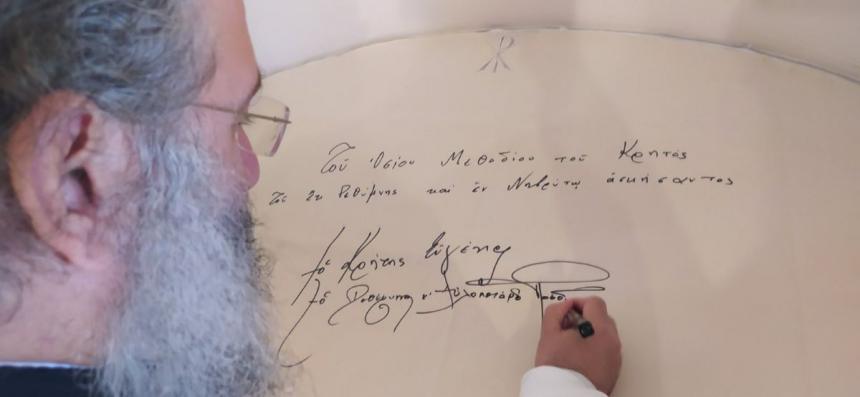 ☧
Τοῦ Ὁσίου Μεθοδίου τοῦ Κρητός
τοῦ ἐκ Ῥεθύμνης καί ἐν Νυβρύτῳ ἀσκήσαντος
† ὁ Κρήτης Εὐγένιος
† ὁ Ῥεθύμνης κ' Αὐλοποτάμου